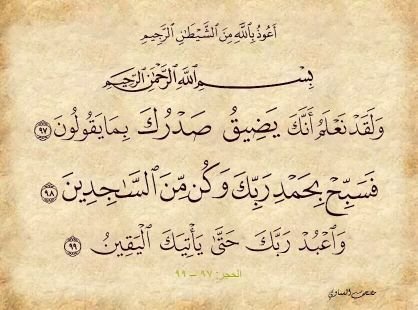 أَعُوذُ بِاللَّهِ مِنَ الشَّيْطَانِ الرَّجِيمِ
بِسْمِ اللَّهِ الرَّحْمَٰنِ الرَّحِيمِ
وَلَقَدْ نَعْلَمُ أَنَّكَ يَضِيقُ صَدْرُكَ بِمَا يَقُولُونَ ٩٧
فَسَبِّحْ بِحَمْدِ رَبِّكَ وَكُن مِّنَ السَّاجِدِينَ ٩٨
وَاعْبُدْ رَبَّكَ حَتَّىٰ يَأْتِيَكَ الْيَقِينُ ٩٩
الحجر: ٩٧ – ٩٩